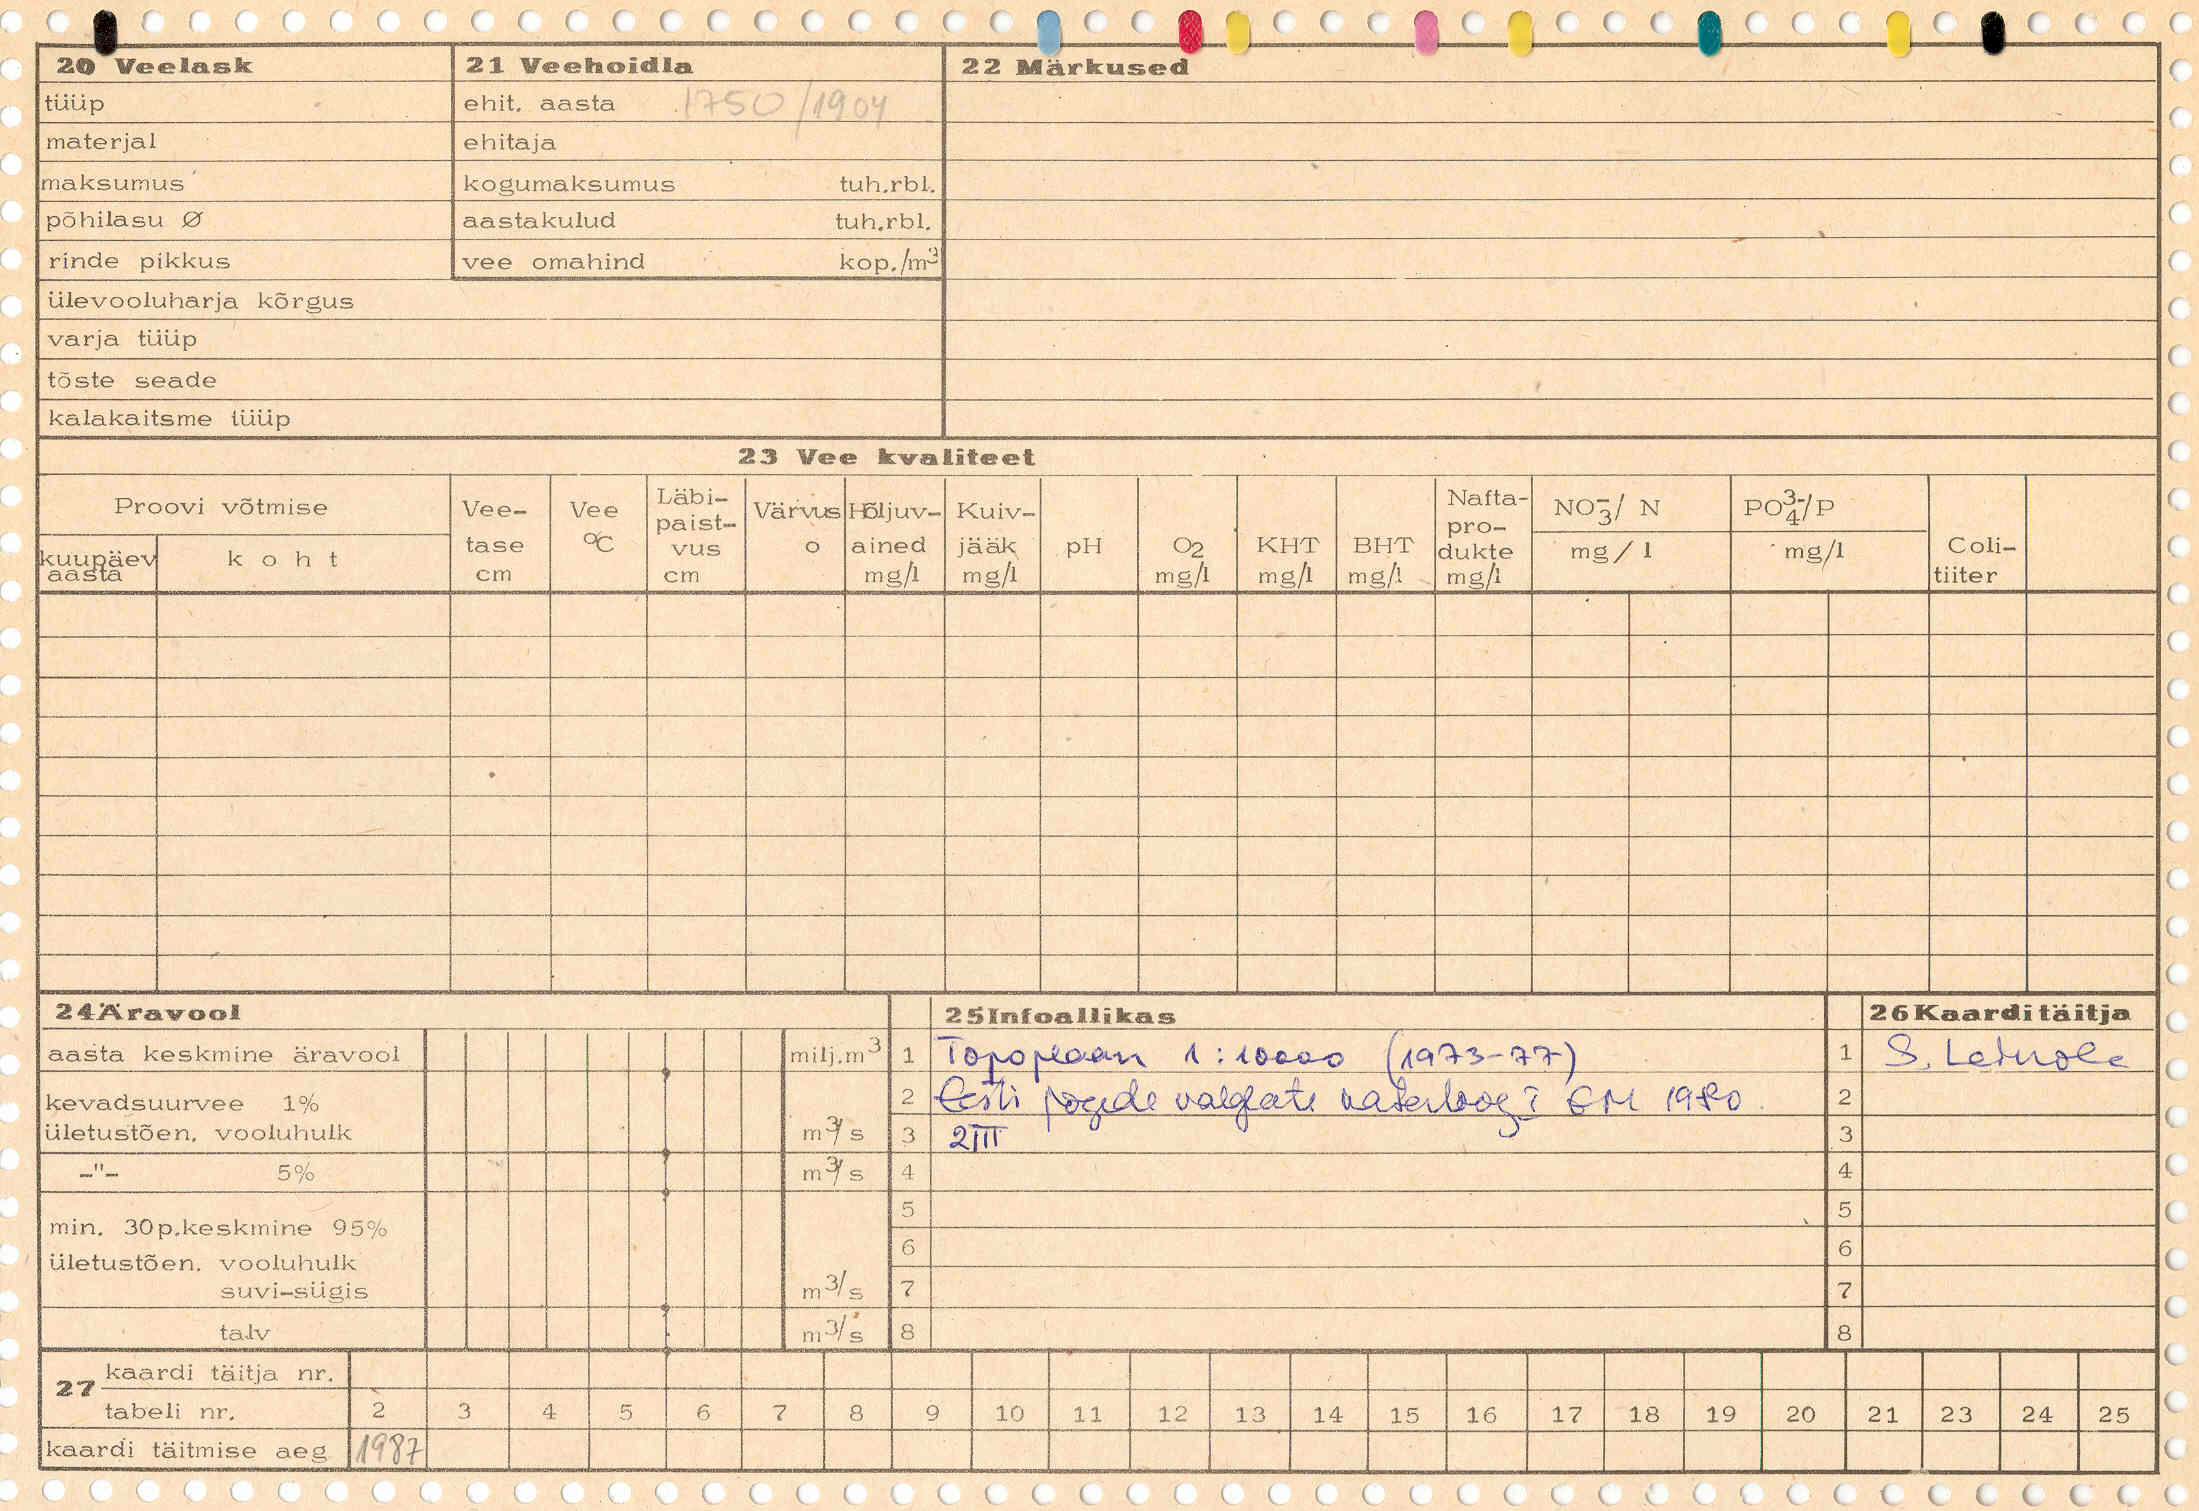 20 Veelask
tüüp
materjal
maksumus
põhilasu Ø
rinde pikkus
ülevooluharja kõrgus
varja tüüp
tõste seade
kalakaitsme tüüp
21 Veehoidla
ehit. aasta 1750/1904
ehitaja
kogumaksumus tuh.rbl.
aastakulud tuh.rbl.
vee omahind kop./m³
22 Märkused
23 Vee kvaliteet
Proovi võtmise
kuupäev aasta
koht
Vee-
tase
cm
Vee
°C
Läbi-
paist-
vus
cm
Värvus
o
Hõljuv-
ained
mg/l
Kuiv-
jääk
mg/l
pH
O₂
mg/l
KHT
mg/l
BHT
mg/l
Nafta-
pro-
dukte
mg/l
NO₃⁻/N
mg/l
PO₄³⁻/P
mg/l
Coli-
tiiter
24 Äravool
aasta keskmine äravool milj.m³
kevadsuurvee 1%
ületustõen. vooluhulk m³/s
-"- 5% m³/s
min. 30p.keskmine 95%
ületustõen. vooluhulk
suvi-sügis m³/s
talv m³/s
25 Infoallikas
1 Topoplaan 1:10000 (1973-77)
2 Eesti jõgede valglate kataloog I EM 1980.
3 2III
4
5
6
7
8
26 Kaarditäitja
1 S.
2
3
4
5
6
7
8
27 kaardi täitja nr.
tabeli nr. 2 3 4 5 6 7 8 9 10 11 12 13 14 15 16 17 18 19 20 21 23 24 25
kaardi täitmise aeg 1987